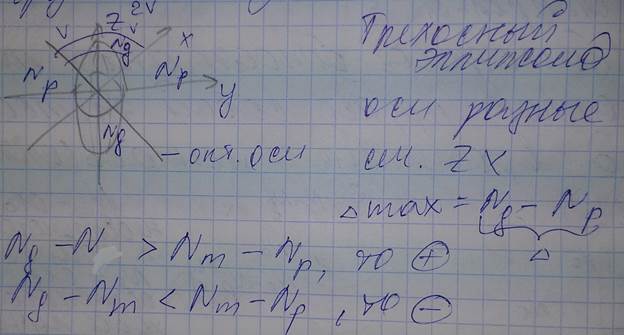 2V
Z
V V
Ng
X
Np Np
y
Ng
- опт. оси
Трехосный
эллипсоид
оси разные
см. ZX
△ max = Ng - Np
△
Ng - N > Nm - Np, то ⊕
Ng - Nm < Nm - Np, то ⊖